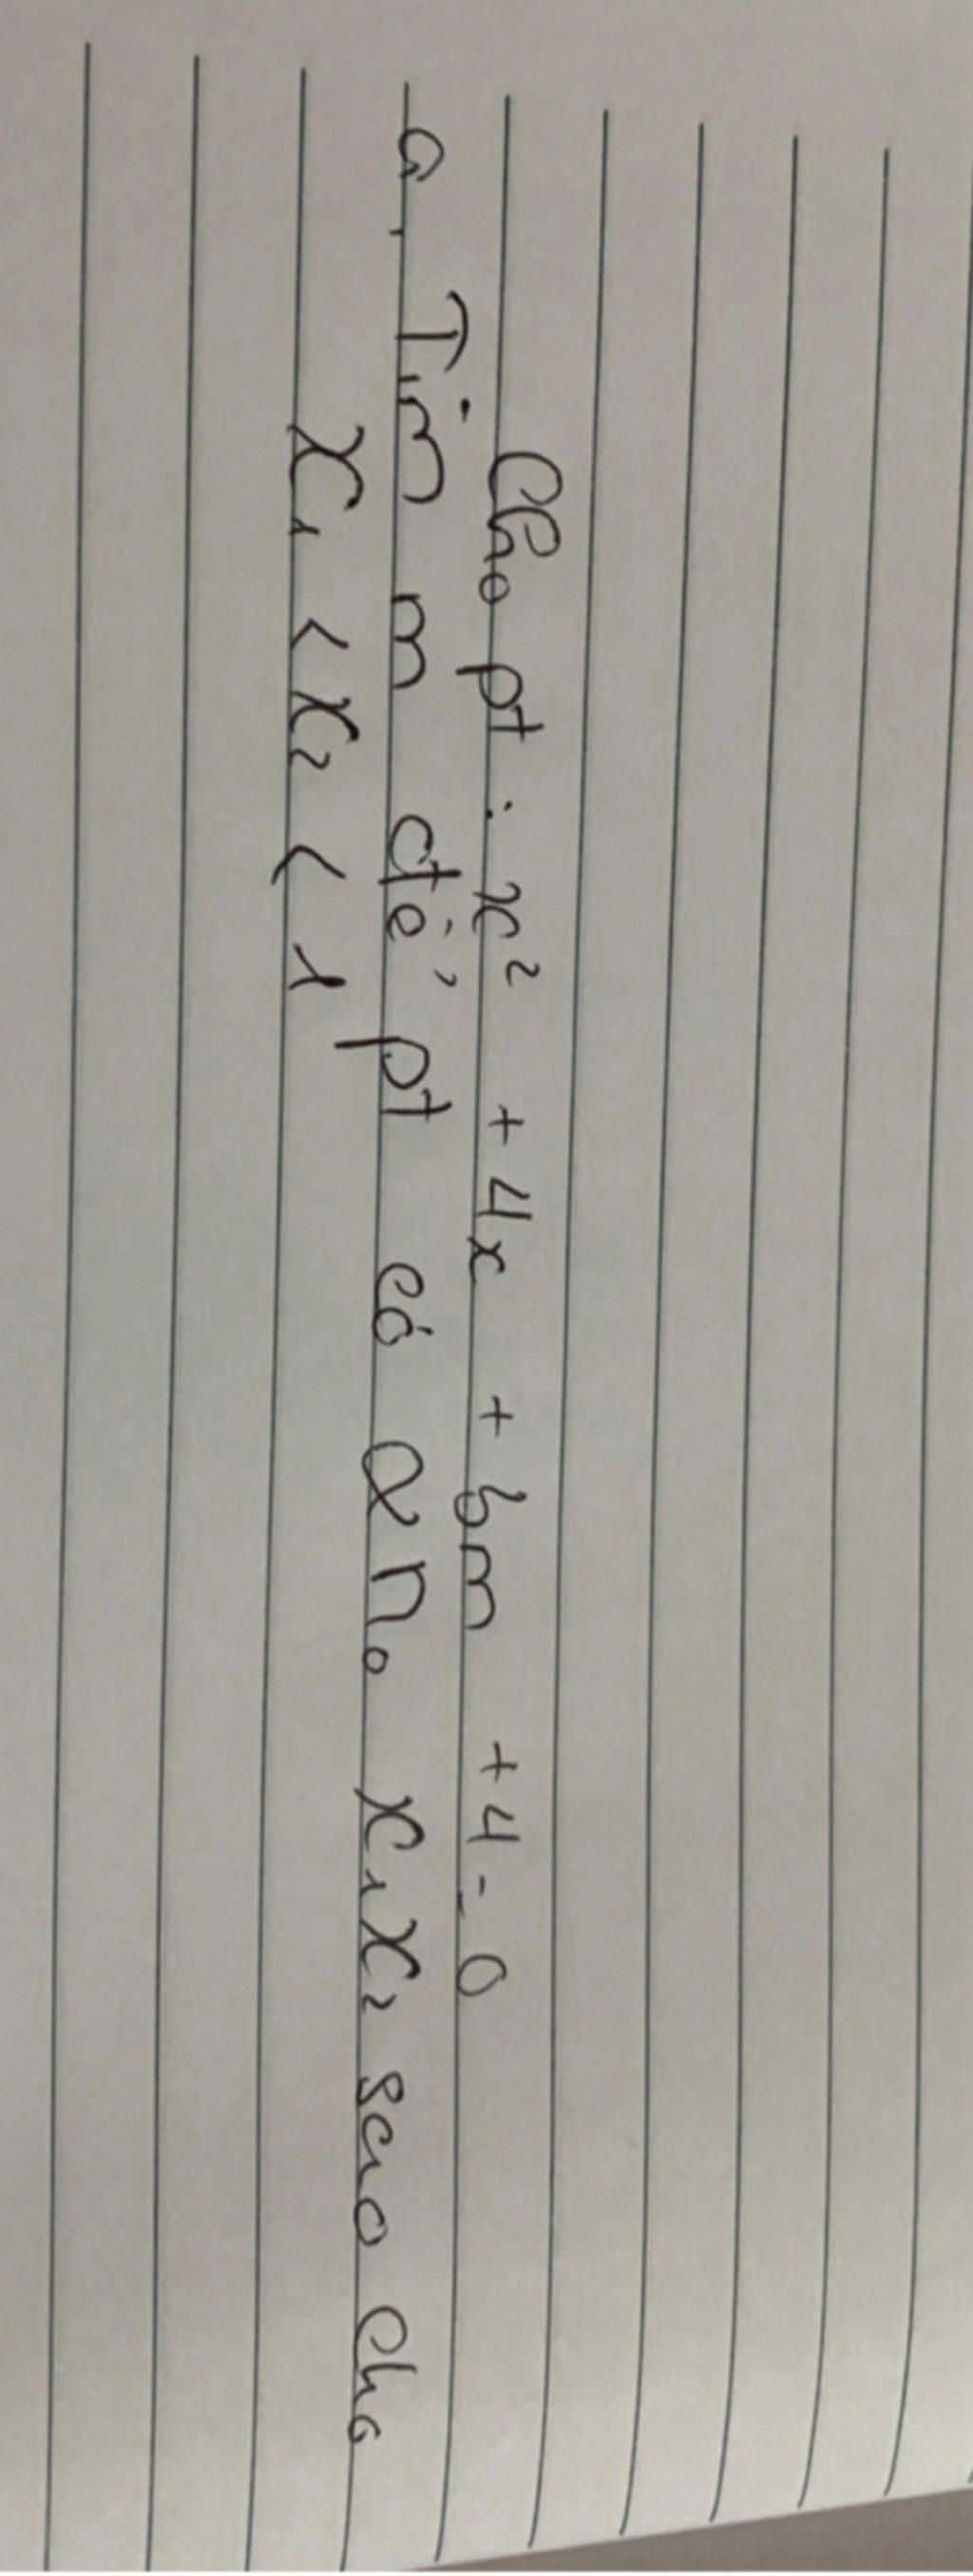 Cho pt : x² + 4x + 3m + 4 = 0
a, Tìm m để pt có 2 n₀ x₁ x₂ sao cho
x₁ < x₂ < 1